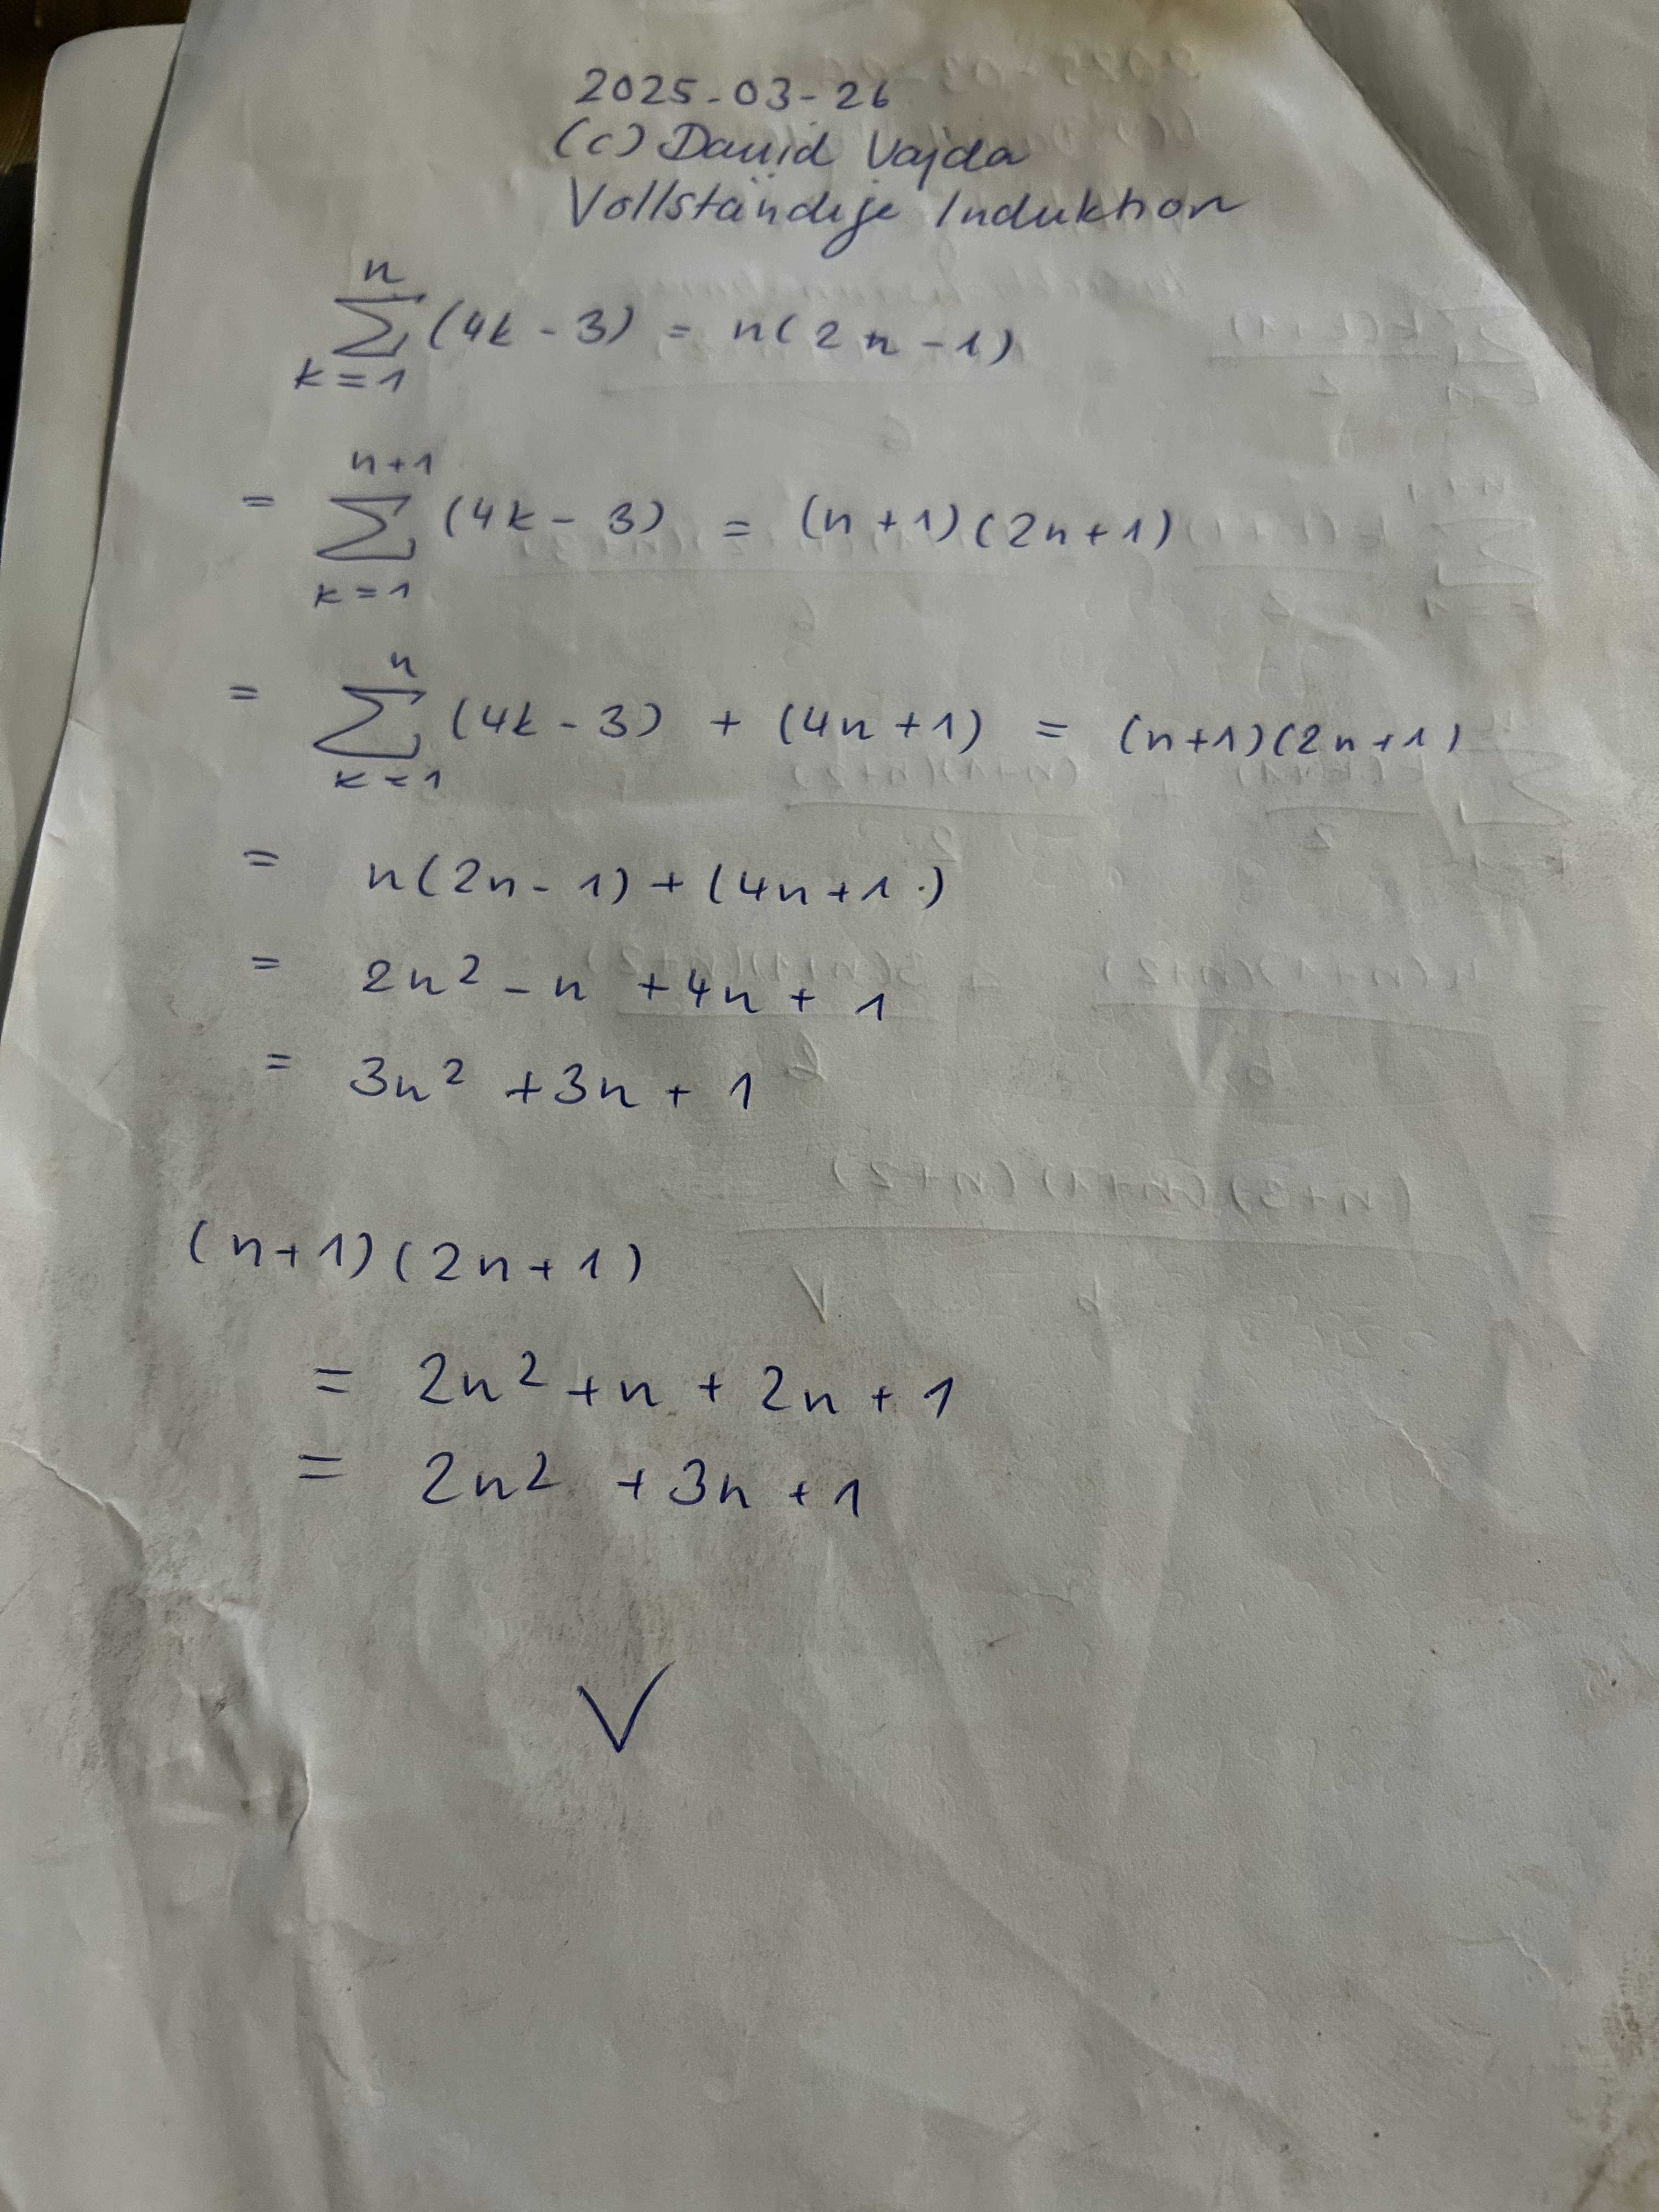 2025-03-26
(c) David Vajda
Vollständige Induktion
n
∑ (4k - 3) = n(2n - 1)
k = 1
n+1
= ∑ (4k - 3) = (n+1)(2n+1)
k = 1
n
= ∑ (4k - 3) + (4n+1) = (n+1)(2n+1)
k = 1
= n(2n - 1) + (4n+1.)
= 2n² - n + 4n + 1
= 3n² + 3n + 1
(n+1)(2n+1)
= 2n² + n + 2n + 1
= 2n² + 3n + 1